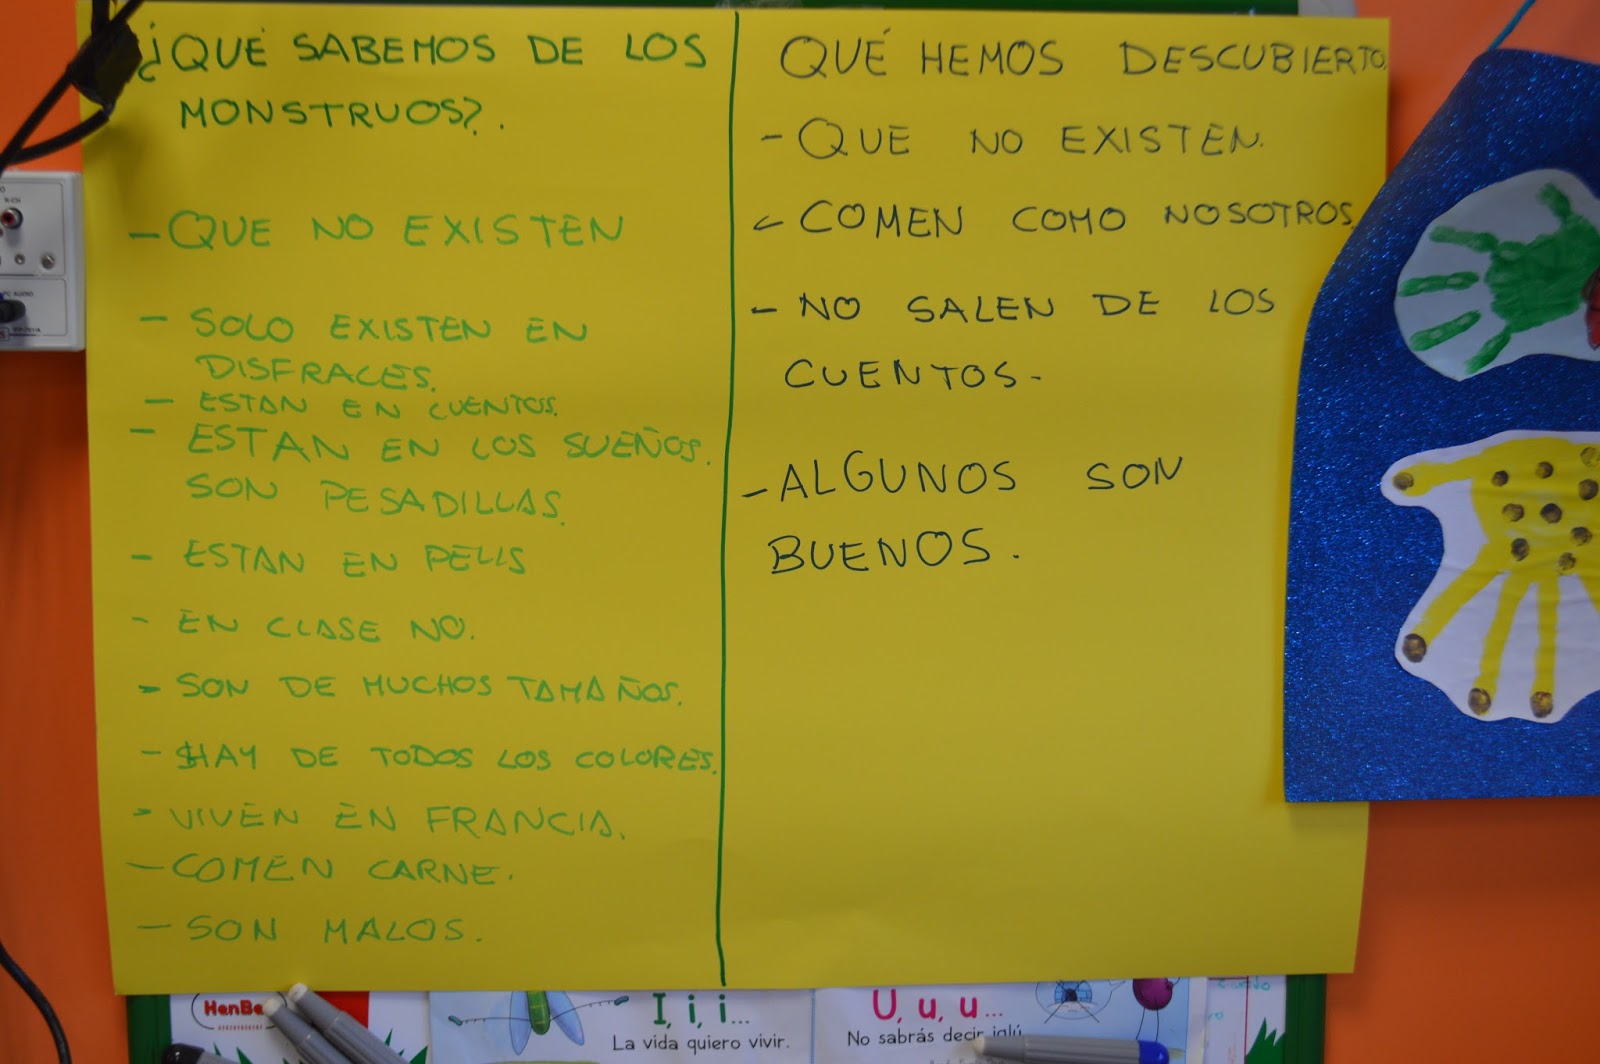 ¿QUÉ SABEMOS DE LOS
MONSTRUOS?.
- QUE NO EXISTEN
- SOLO EXISTEN EN
DISFRACES.
- ESTAN EN CUENTOS.
- ESTAN EN LOS SUEÑOS.
SON PESADILLAS.
- ESTAN EN PELIS
- EN CLASE NO.
- SON DE MUCHOS TAMAÑOS.
- HAY DE TODOS LOS COLORES.
- VIVEN EN FRANCIA.
- COMEN CARNE.
- SON MALOS.
QUÉ HEMOS DESCUBIERTO.
- QUE NO EXISTEN.
- COMEN COMO NOSOTROS.
- NO SALEN DE LOS
CUENTOS-
- ALGUNOS SON
BUENOS.
I, i, i...
La vida quiero vivir.
U, u, u...
No sabrás decir iglú